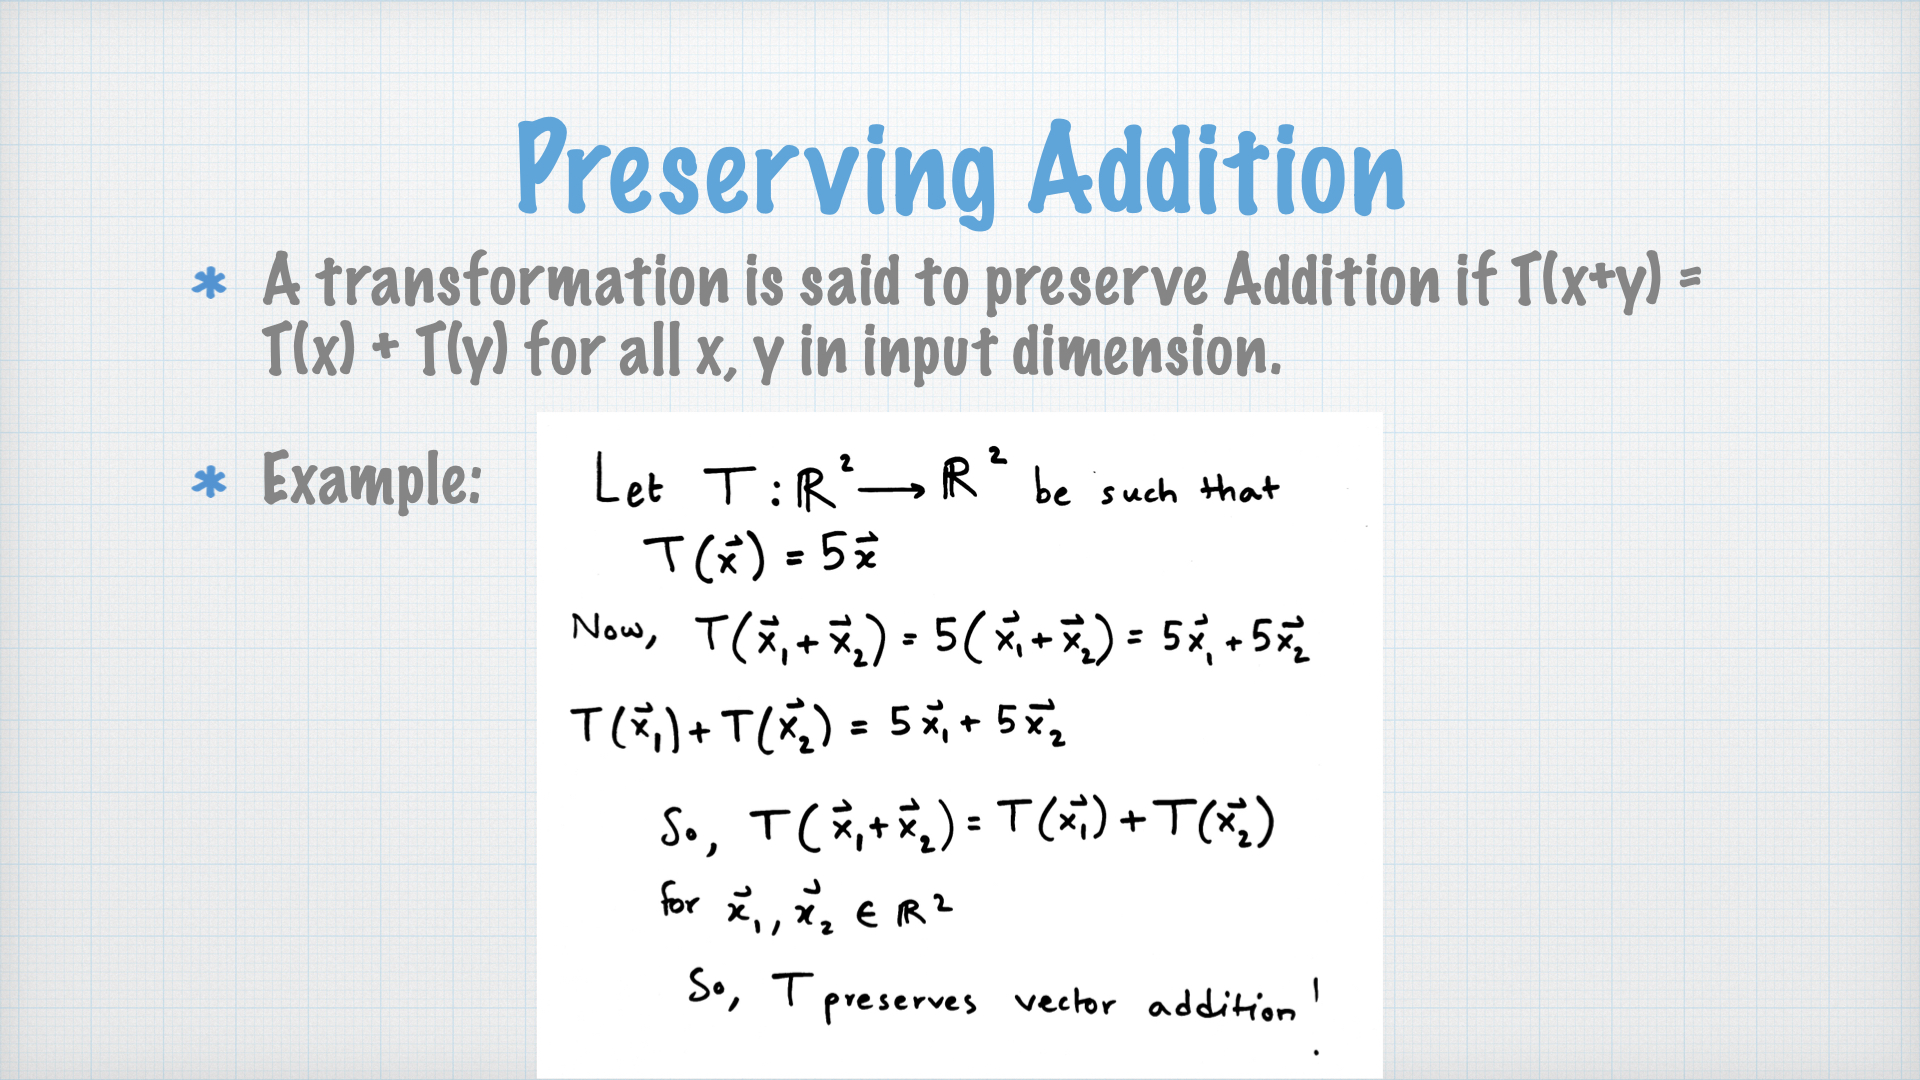 Preserving Addition
* A transformation is said to preserve Addition if T(x+y) =
T(x) + T(y) for all x, y in input dimension.
* Example:
Let T : ℝ² → ℝ² be such that
T(x⃗) = 5x⃗
Now, T(x⃗₁ + x⃗₂) = 5(x⃗₁ + x⃗₂) = 5x⃗₁ + 5x⃗₂
T(x⃗₁) + T(x⃗₂) = 5x⃗₁ + 5x⃗₂
So, T(x⃗₁ + x⃗₂) = T(x⃗₁) + T(x⃗₂)
for x⃗₁, x⃗₂ ∈ ℝ²
So, T preserves vector addition!